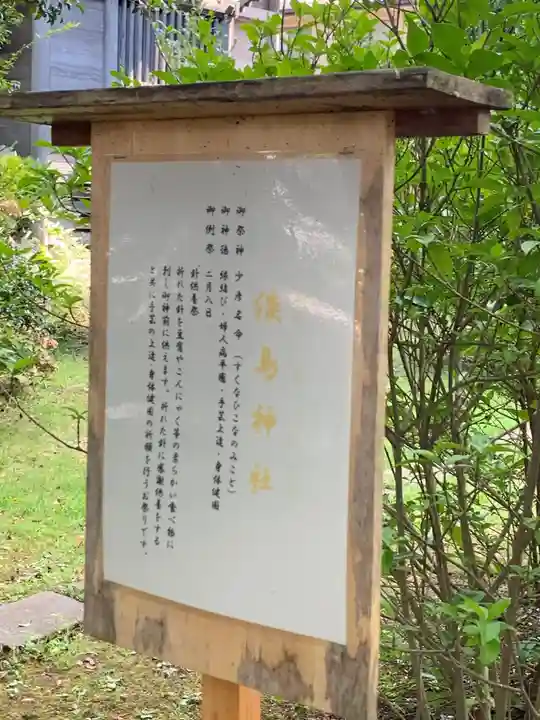 淡島神社
御祭神　少彦名命　(すくなひこなのみこと)
御神徳　縁結び・婦人病平癒・手芸上達・身体健固
御例祭　二月八日
針供養祭
折れた針を豆腐やこんにゃく等の柔らかい食べ物に
刺し御神前に供えます。折れた針に感謝供養をする
と共に手芸の上達・身体健固の祈願を行うお祭りです。